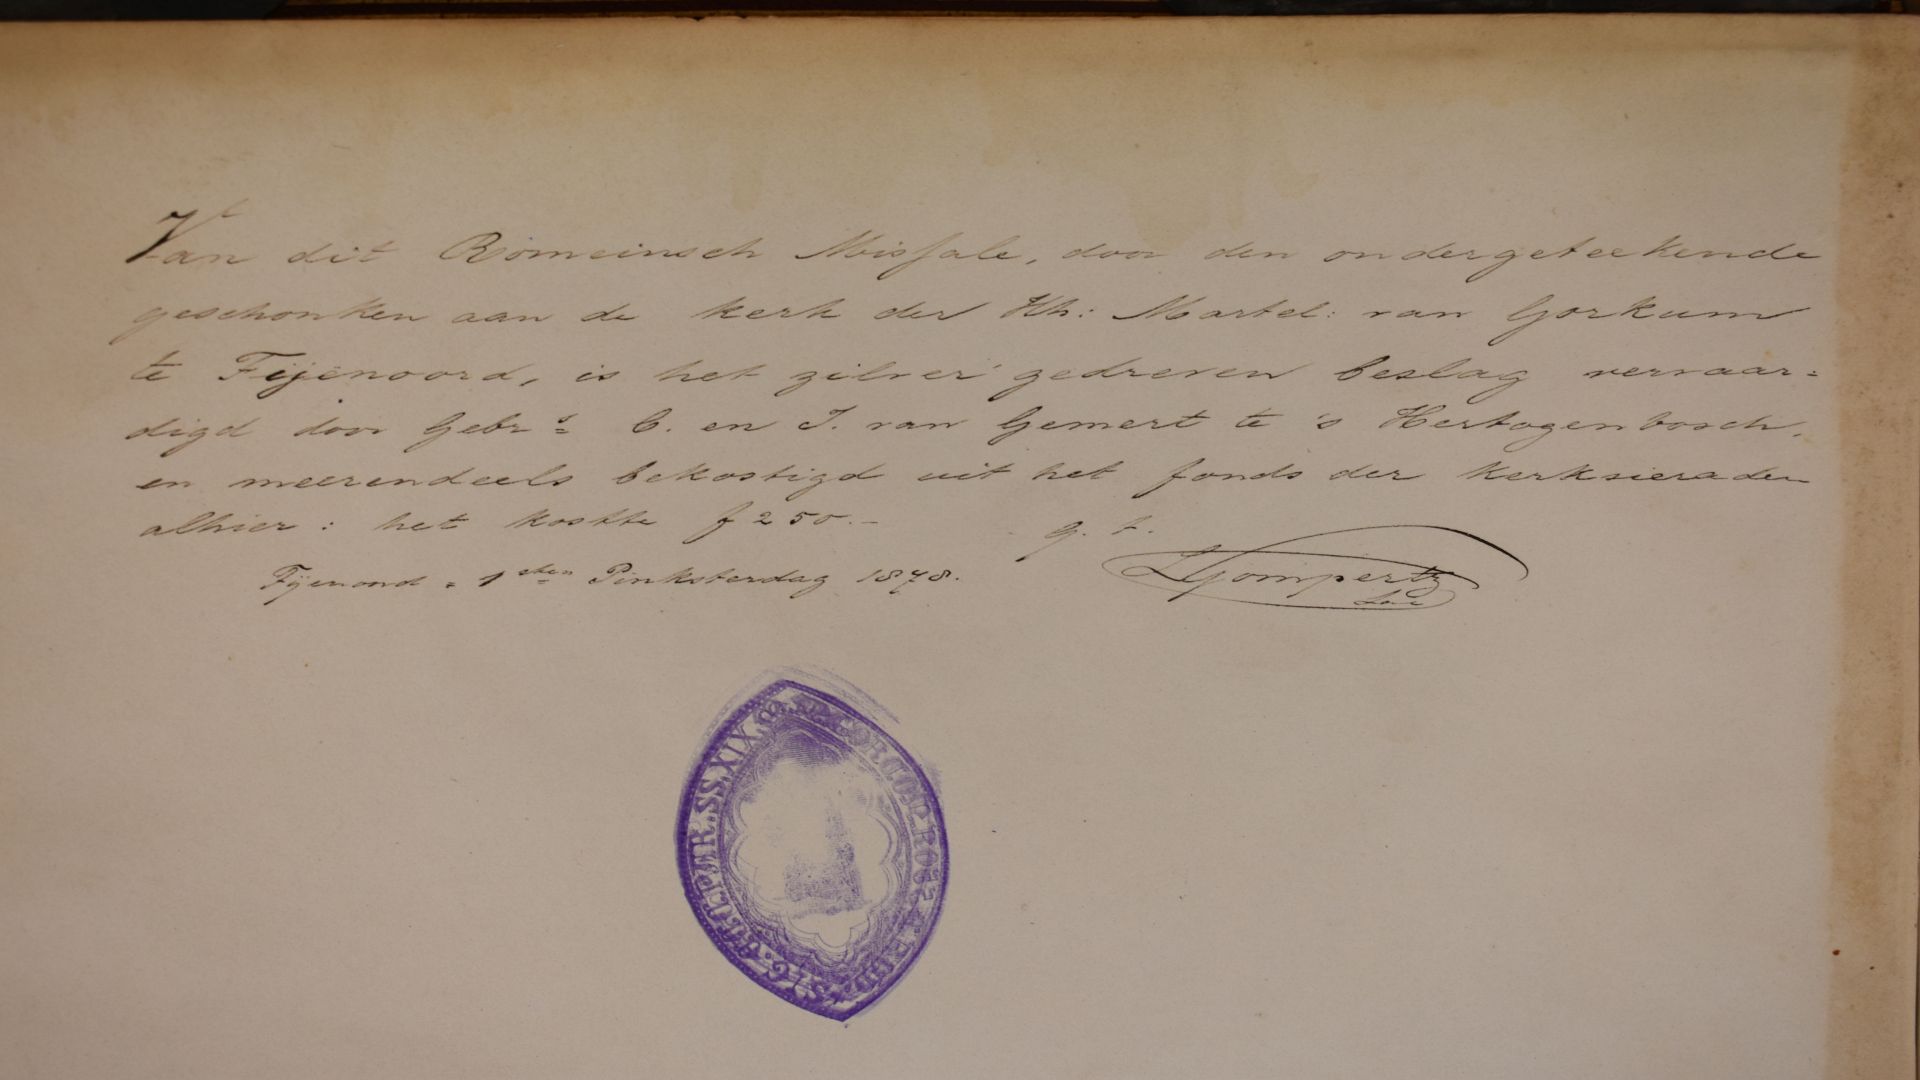 Van dit Romeinsch Missale, door den ondergeteekende
geschonken aan de kerk der HH: Martel: van Gorkum
te Fijenoord, is het zilver gedreven beslag vervaar=
digd door Gebrs C. en J. van Gemert te 's Hertogenbosch,
en meerendeels bekostigd uit het fonds der kerksieraden
alhier: het kostte f 250.-
g. t.
Fijenoord. 1sten Pinksterdag 1878.
LGompertz
SIG. PAR. SS. XIX. M. GORCOM